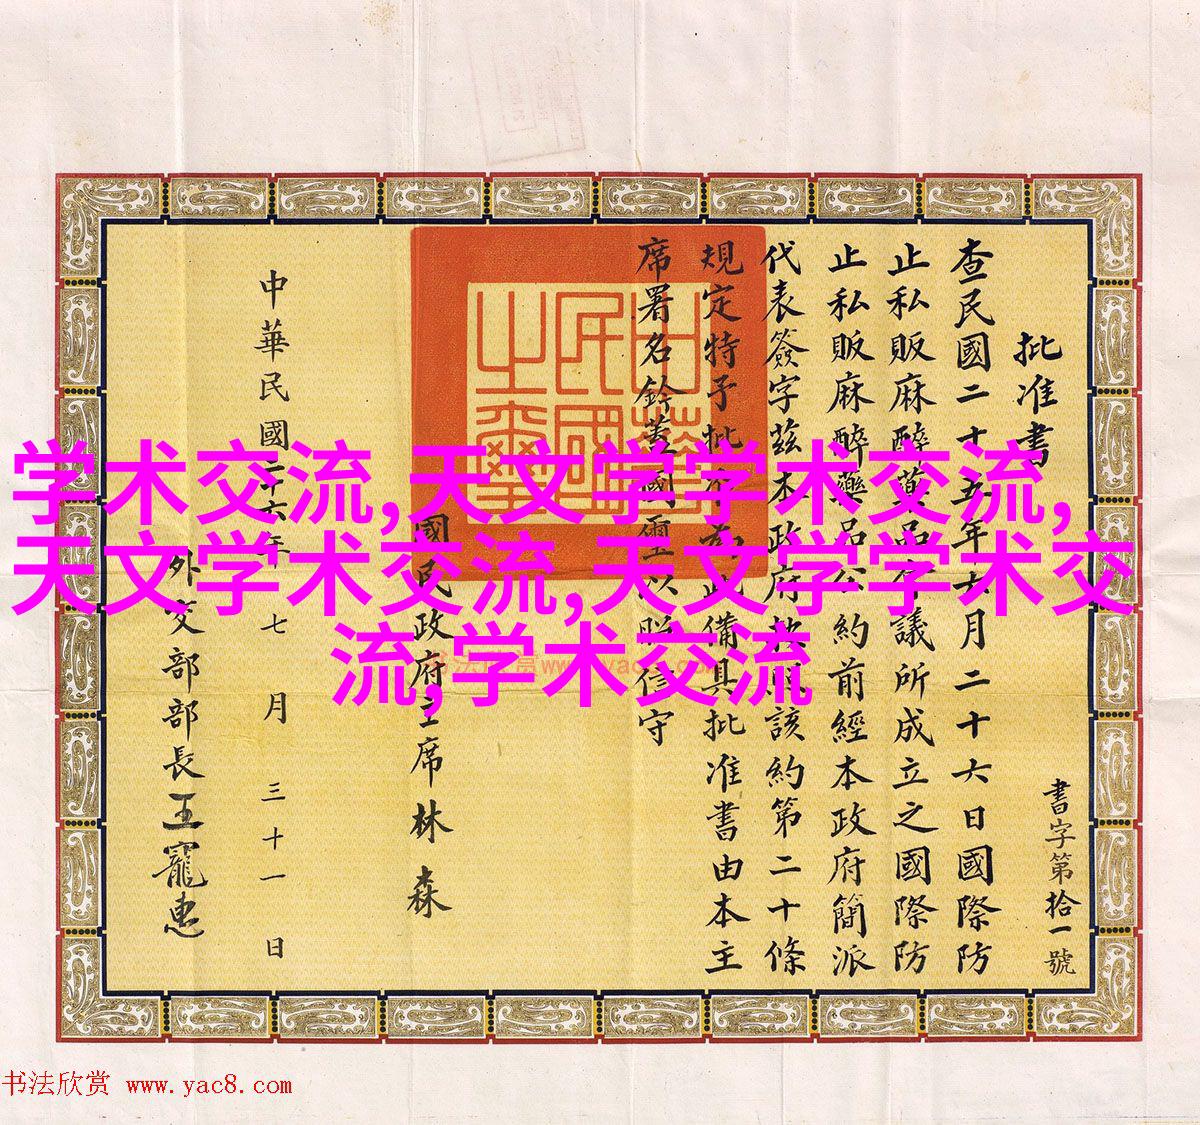 批准書
書字第拾一號
查民國二十五年六月二十六日國際防
止私販麻醉藥品會議所成立之國際防
止私販麻醉藥品公約前經本政府簡派
代表簽字茲本政府按照該約第二十條
規定特予批准為此備具批准書由本主
席署名鈐蓋國璽以昭信守
中華民國之璽
國民政府主席林森
中華民國二十六年七月三十一日
外交部部長王寵惠
学术交流,天文学学术交流,
天文学术交流,天文学学术交
流,学术交流
书法欣赏 www.yac8.com